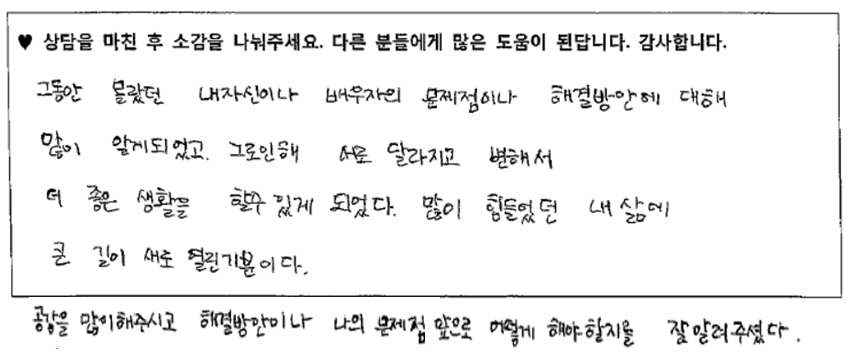 ♥ 상담을 마친 후 소감을 나눠주세요. 다른 분들에게 많은 도움이 된답니다. 감사합니다.
그동안 몰랐던 내자신이나 배우자의 문제점이나 해결방안에 대해
많이 알게되었고. 그로인해 서로 달라지고 변해서
더 좋은 생활을 할수 있게 되었다. 많이 힘들었던 내 삶에
큰 길이 새로 열린기분이다.
공감을 많이해주시고 해결방안이나 나의 문제점 앞으로 어떻게 해야할지를 잘알려주셨다.